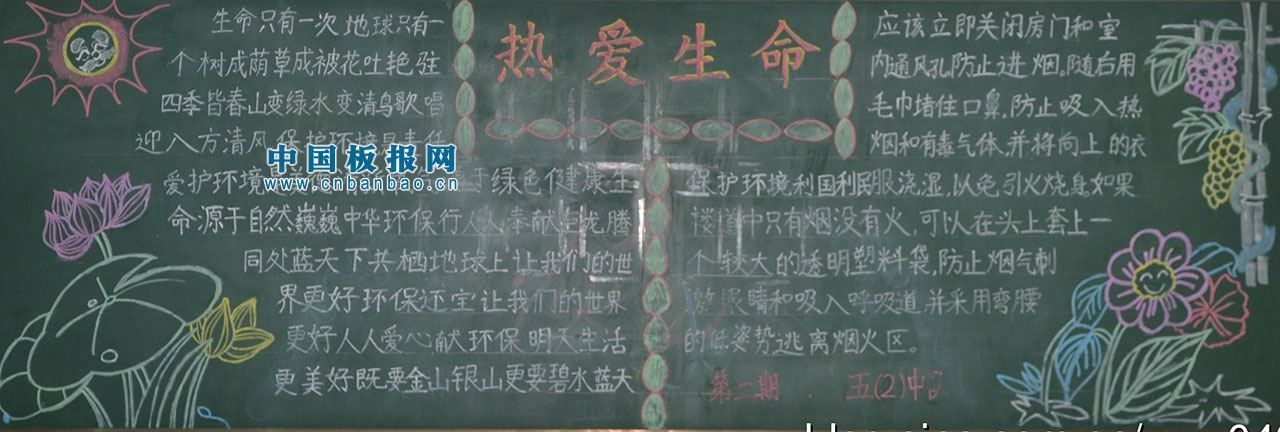 热爱生命
生命只有一次地球只有一
个树成荫草成被花吐艳驻
四季皆春山变绿水变清鸟歌唱
迎入方清风保护环境是责任
爱护环境 于绿色健康生
命源于自然巍巍中华环保行人人奉献 龙腾
同处蓝天下共栖地球上让我们的世
界更好环保还宝让我们的世界
更好人人爱心献环保明天生活
更美好既要金山银山更要碧水蓝天
保护环境利国利民
应该立即关闭房门和室
内通风孔,防止进烟。随后用
毛巾堵住口鼻,防止吸入热
烟和有毒气体,并将向上的衣
服浇湿,以免引火烧身。如果
楼道中只有烟没有火,可以在头上套上一
个较大的透明塑料袋,防止烟气刺
激眼睛和吸入呼吸道,并采用弯腰
的低姿势逃离烟火区。
第二期 五(2)中队
中国板报网
www.cnbanbao.cn